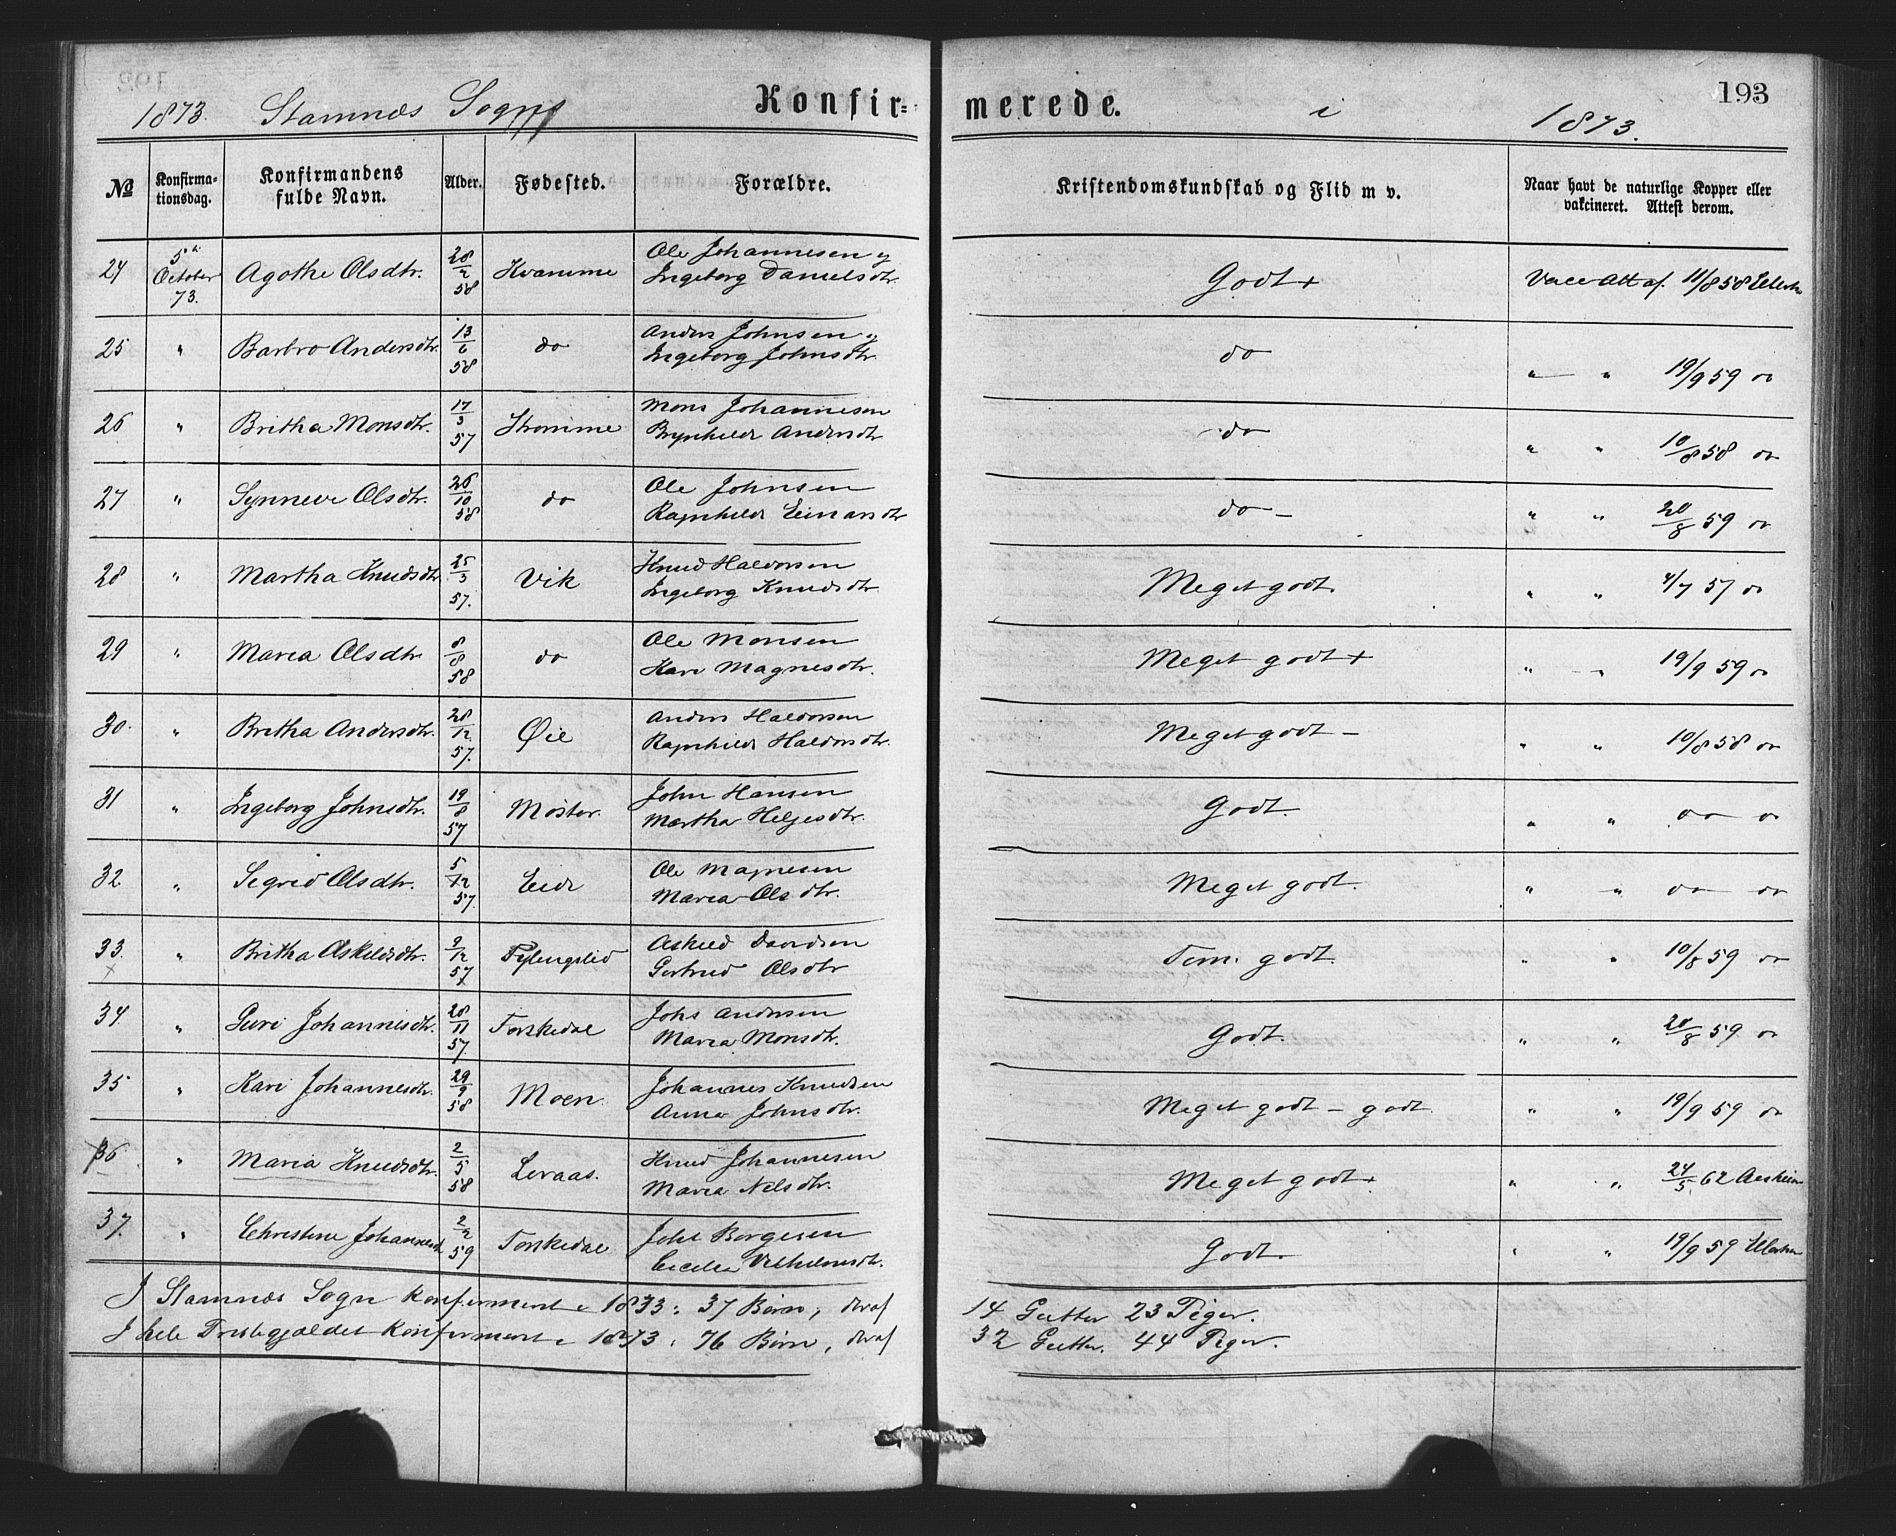 193
1873. Stamnæs Sogn Konfirmerede. i 1873.
№ Konfirmationsdag. Konfirmandens fulde Navn. Alder. Fødested. Forældre. Kristendomskundskab og Flid m v. Naar havt de naturlige Kopper eller vakcineret. Attest derom.
24 5 October 73. Agathe Olsdtr. 28/2 58 Kvamme Ole Johannesen og Ingeborg Danielsdtr. Godt + Vacc Att af. 11/8 58
25 " Barbro Andersdtr. 13/6 58 do Anders Johnsen og Ingeborg Johnsdtr. do " " 19/9 59 do
26 " Britha Monsdtr. 17/3 57 Straumme Mons Johannesen Brynhilde Andersdtr do " " 10/8 58 do
27 " Synneve Olsdtr. 26/10 58 do Ole Johnsen Ragnhilde Einarsdtr do - " " 20/8 59 do
28 " Martha Knudsdtr 25/3 57. Vik Knud Haldorsen Ingeborg Knudsdtr. Meget godt. " " 4/7 57 do
29 " Maria Olsdtr 8/8 58 do Ole Monsen Kari Magnesdtr. Meget godt + " " 19/9 59 do
30. " Britha Andersdtr. 28/12 57. Øie Anders Haldorsen Ragnhilde Haldorsdtr. Meget godt - " " 10/8 58 do
31 " Ingeborg Johnsdtr. 19/8 57 Moster. John Hansen Martha Helgesdtr. Godt. " " do do
32 " Sigrid Olsdtr. 5/12 57. Eide Ole Magnesen Maria Olsdtr. Meget godt. " " do do
33. x " Britha Askeldsdtr. 9/12 57 x Fylingslid Askeld Davidsen Gertrud Olsdtr Tem. godt. " " 10/8 59 do
34 " Guri Johannesdtr. 28/11 57. Torskedal Johs Andersen Maria Monsdtr. Godt. " " 20/8 59 do
35 " Kari Johannesdtr. 29/9 58 Moen Johannes Knudsen Anna Johnsdtr. Meget godt - godt " " 19/9 59 do
36 " Maria Knudsdtr. 2/5 58 Leraas. Knud Johannesen Maria Nilsdtr. Meget godt + " " 24/5 62
37. " Christine Johannesd 2/2 59 Torskedal Johs Børgesen Cecilia Vilhelmsdtr. Godt. " " 19/9 59
I Stamnæs Sogn konfirmeret i 1873: 37 Børn, deraf 14 Gutter 23 Piger.
I hele Præstegjældet konfirmeret i 1873: 76 Børn, deraf 32 Gutter. 44 Piger.